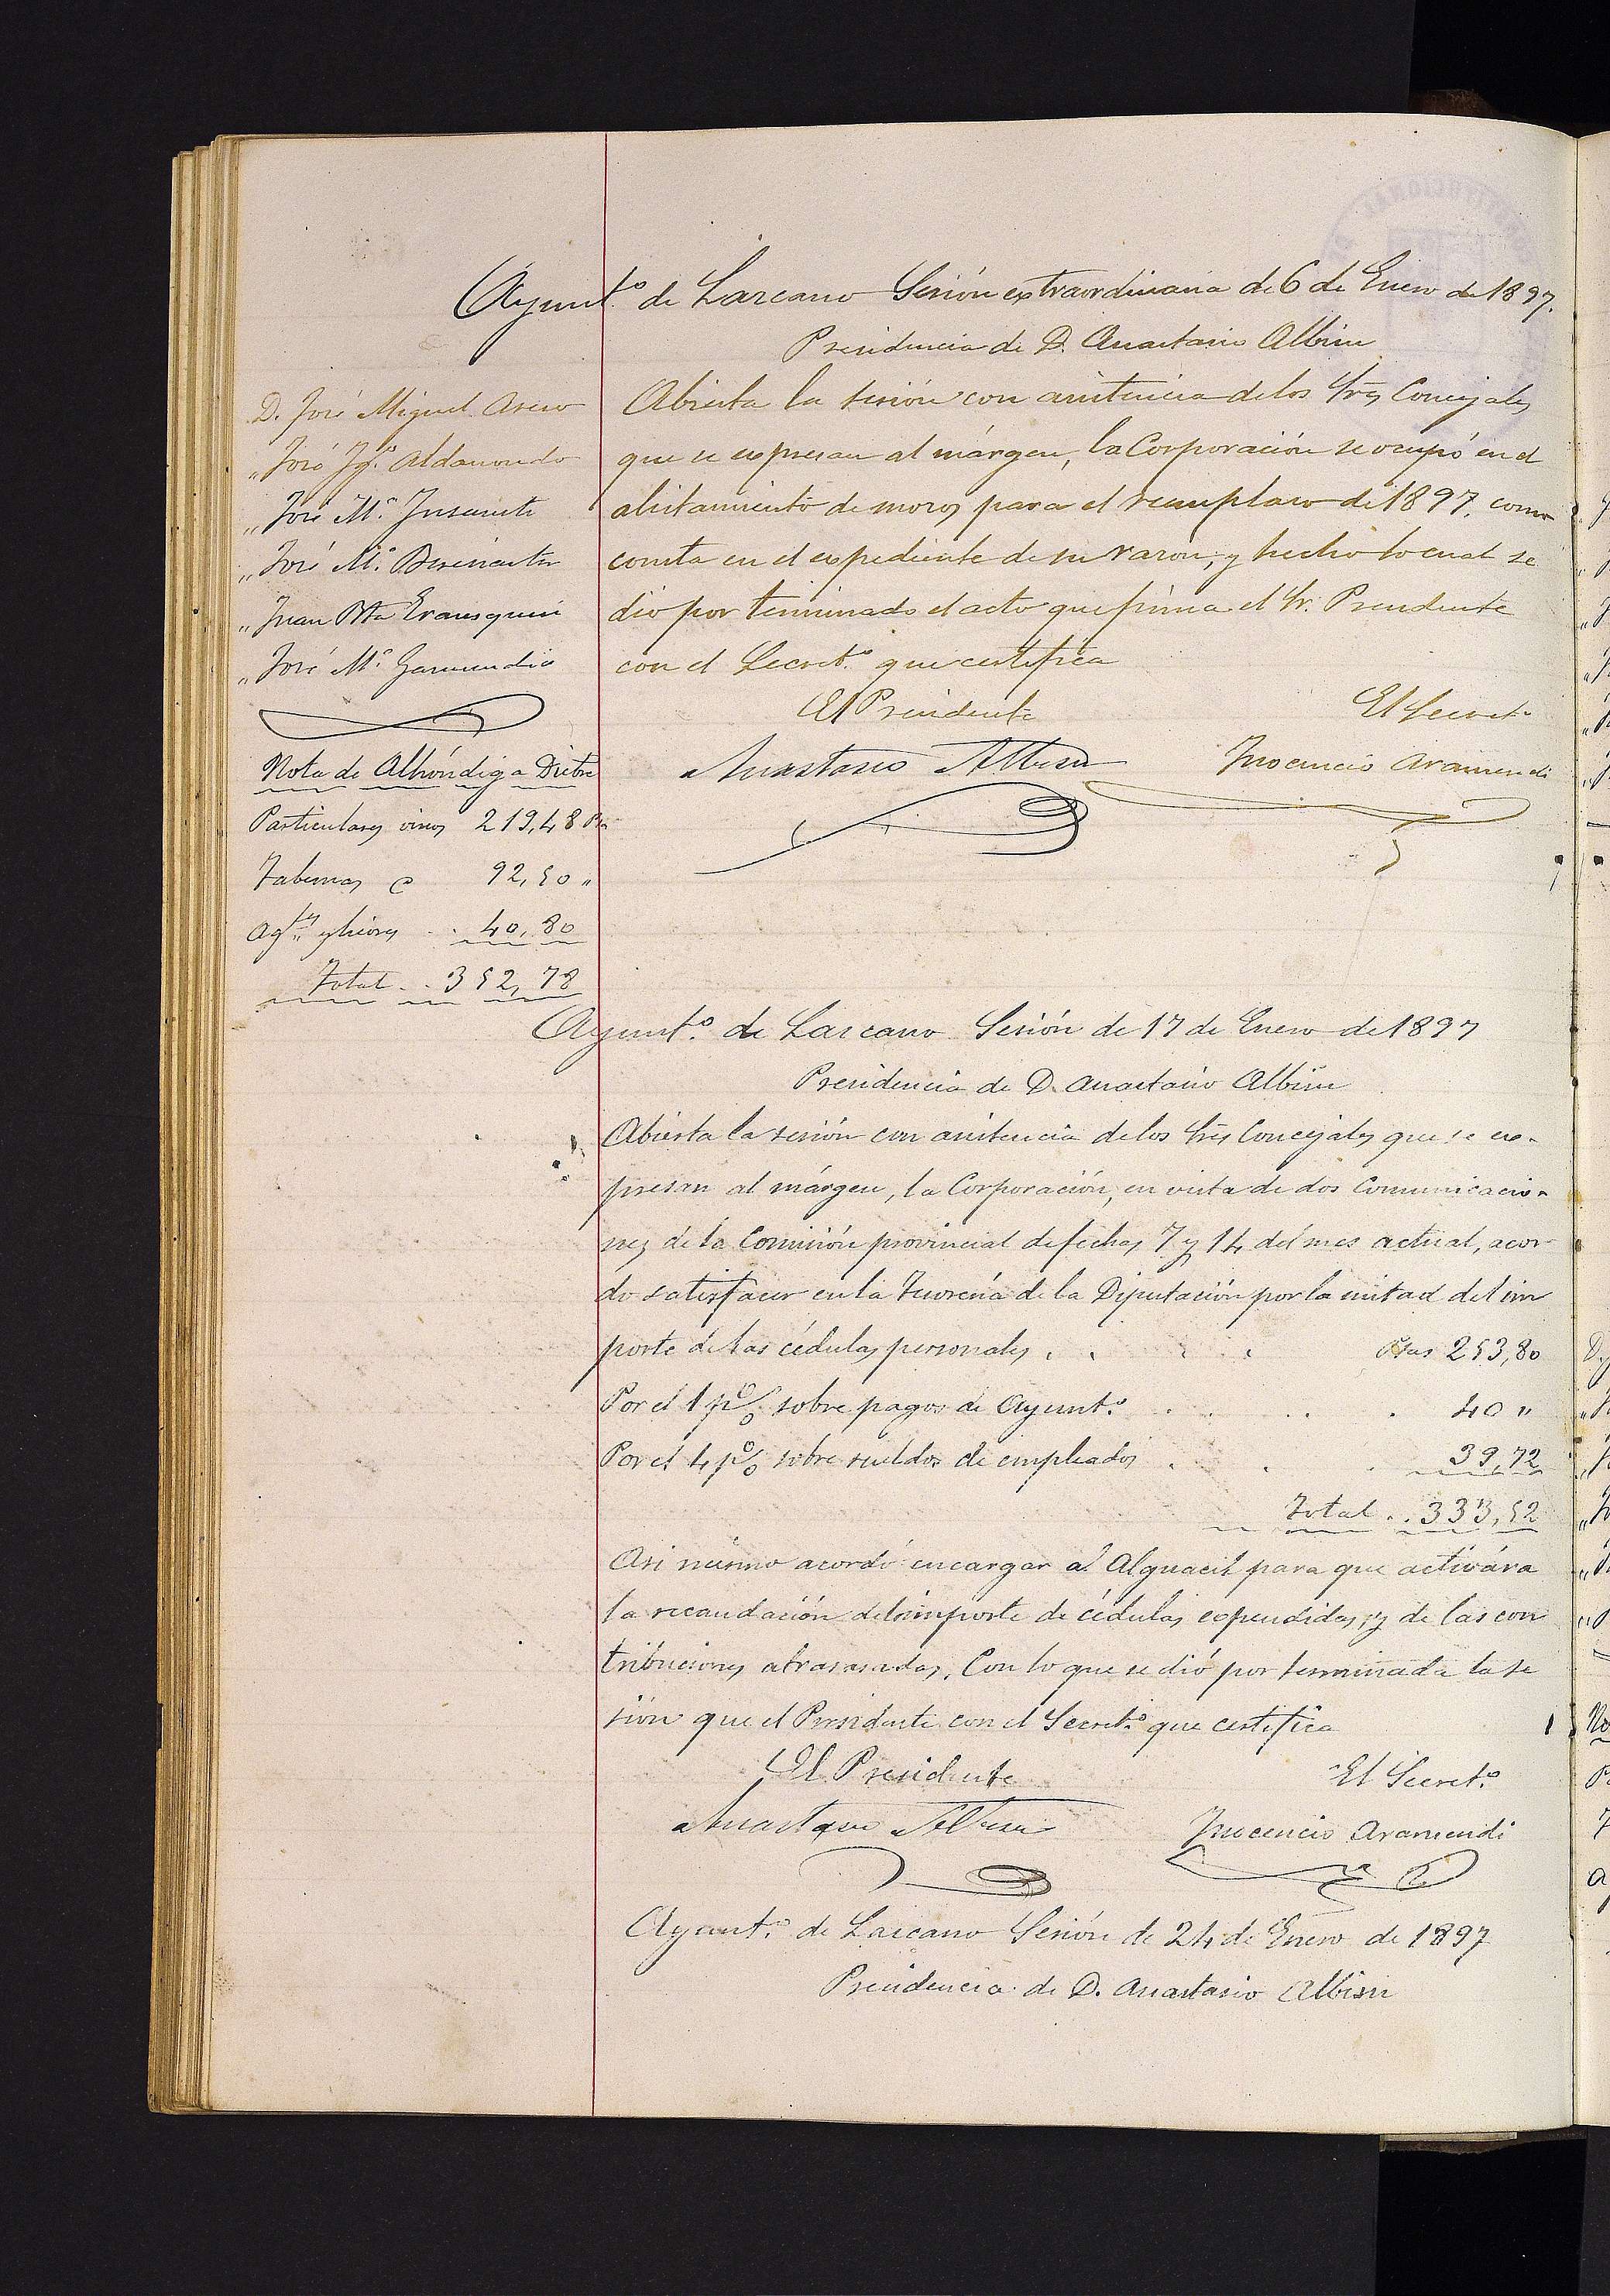 Ayunt.º de Lazcano Sesión extraordinaria de 6 de Enero de 1897.
Presidencia de D. Anastasio Albisu
D. José Miguel Asero
" José Ig.º Aldasoro
" José M.ª Insausti
" José M.ª
" Juan Bta Erausquin
" José M.ª Garmendia
Abierta la sesión con asistencia de los Sres Concejales
que se expresan al márgen, la Corporación se ocupó en el
alistamiento de mozos para el reemplazo de 1897, como
consta en el expediente de su razon; y hecho lo cual se
dió por terminado el acto que firma el Sr. Presidente
con el Secret.º que certifica
El Presidente El Secret.º
Anastasio Albisu Inocencio Aramendi
Nota de Alhóndiga Dicbre
Particulares vinos 219,48 Pts
Tabernas @ 92,50 "
Agtes y licores . . 40,80
Total . . 352,78
Ayunt.º de Lazcano Sesión de 17 de Enero de 1897
Presidencia de D. Anastasio Albisu
Abierta la sesión con asistencia de los Sres Concejales que se ex-
presan al márgen, la Corporación, en vista de dos Comunicacio-
nes de la Comisión provincial de fechas 7 y 14 del mes actual, acor-
dó satisfacer en la Tesorería de la Diputación por la mitad del im
porte de las cédulas personales . . . . Ptas 253,80
Por el 1 p% sobre pagos de Ayunt.º . . . . 40 "
Por el 4 p% sobre sueldos de empleados . . . 39,72
Total . . 333,52
Asi mismo acordó encargar al Alguacil para que activára
la recaudación del importe de cédulas expendidas, y de las con
tribuciones atrasasadas. Con lo que se dió por terminada la se
sión que el Presidente con el Secret.º que certifica
El Presidente El Secret.º
Anastasio Albisu Inocencio Aramendi
Ayunt.º de Lazcano Sesión de 24 de Enero de 1897
Presidencia de D. Anastasio Albisu